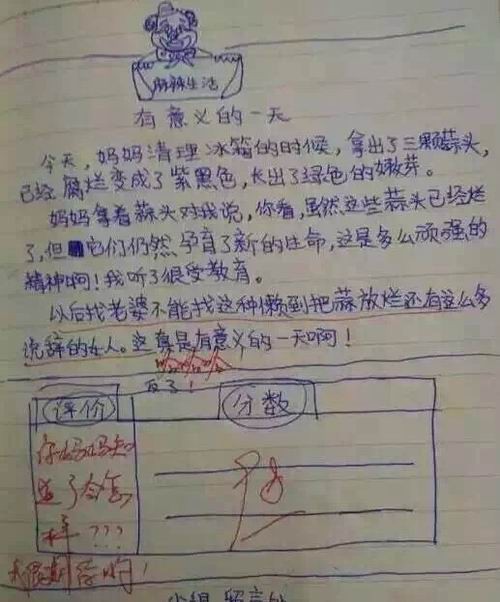 麻辣生活
有意义的一天
今天，妈妈清理冰箱的时候，拿出了三颗蒜头，
已经腐烂变成了紫黑色，长出了绿色的嫩芽。
妈妈拿着蒜头对我说，你看，虽然这些蒜头已经烂
了，但它们仍然孕育了新的生命，这是多么顽强的
精神啊！我听了很受教育。
以后找老婆不能找这种懒到把蒜放烂还有这么多
说辞的女人。这真是有意义的一天啊！
反了！
评价
分数
你妈妈知
道了会怎
样？？？
小组留言处